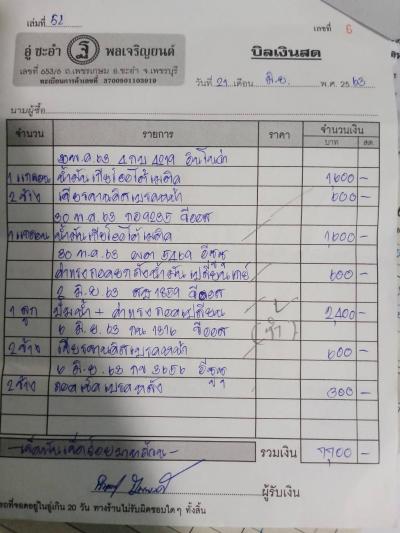 เล่มที่ 52
เลขที่ 6
อู่ ชะอำ พลเจริญยนต์
เลขที่ 653/6 ถ.เพชรเกษม อ.ชะอำ จ.เพชรบุรี
ทะเบียนการค้าเลขที่ 3700901103019
บิลเงินสด
วันที่ 21 เดือน มิ.ย. พ.ศ. 2563
นามผู้ซื้อ
จำนวน รายการ ราคา จำนวนเงิน
บาท สต.
พ.ค. 63 4219
1 แกลลอน น้ำมันเกียร์ออโต้เมติค 1600 -
2 ข้าง เจียรจานดิสเบรคหน้า 600 -
30 พ.ค. 63 วีออส
1 แกลลอน น้ำมันเกียร์ออโต้เมติค 1600 -
30 พ.ค. 63 5469 อีซูซุ
ค่าแรงถอดยกถังน้ำมัน 600 -
2 มิ.ย. 63 1859 วีออส
1 ลูก ปั๊มน้ำ + ค่าแรงถอดเปลี่ยน 2,400 -
6 มิ.ย. 63 กน 1316 วีออส (ซ้ำ)
2 ข้าง เจียรจานดิสเบรคหน้า 600 -
6 มิ.ย. 63 กข 3656 อีซูซุ
2 ข้าง ถอดเช็คเบรคหลัง 300 -
-เจ็ดพันเจ็ดร้อยบาทถ้วน- รวมเงิน 7700 -
ผู้รับเงิน
รถที่จอดอยู่ในอู่เกิน 20 วัน ทางร้านไม่รับผิดชอบใดๆ ทั้งสิ้น